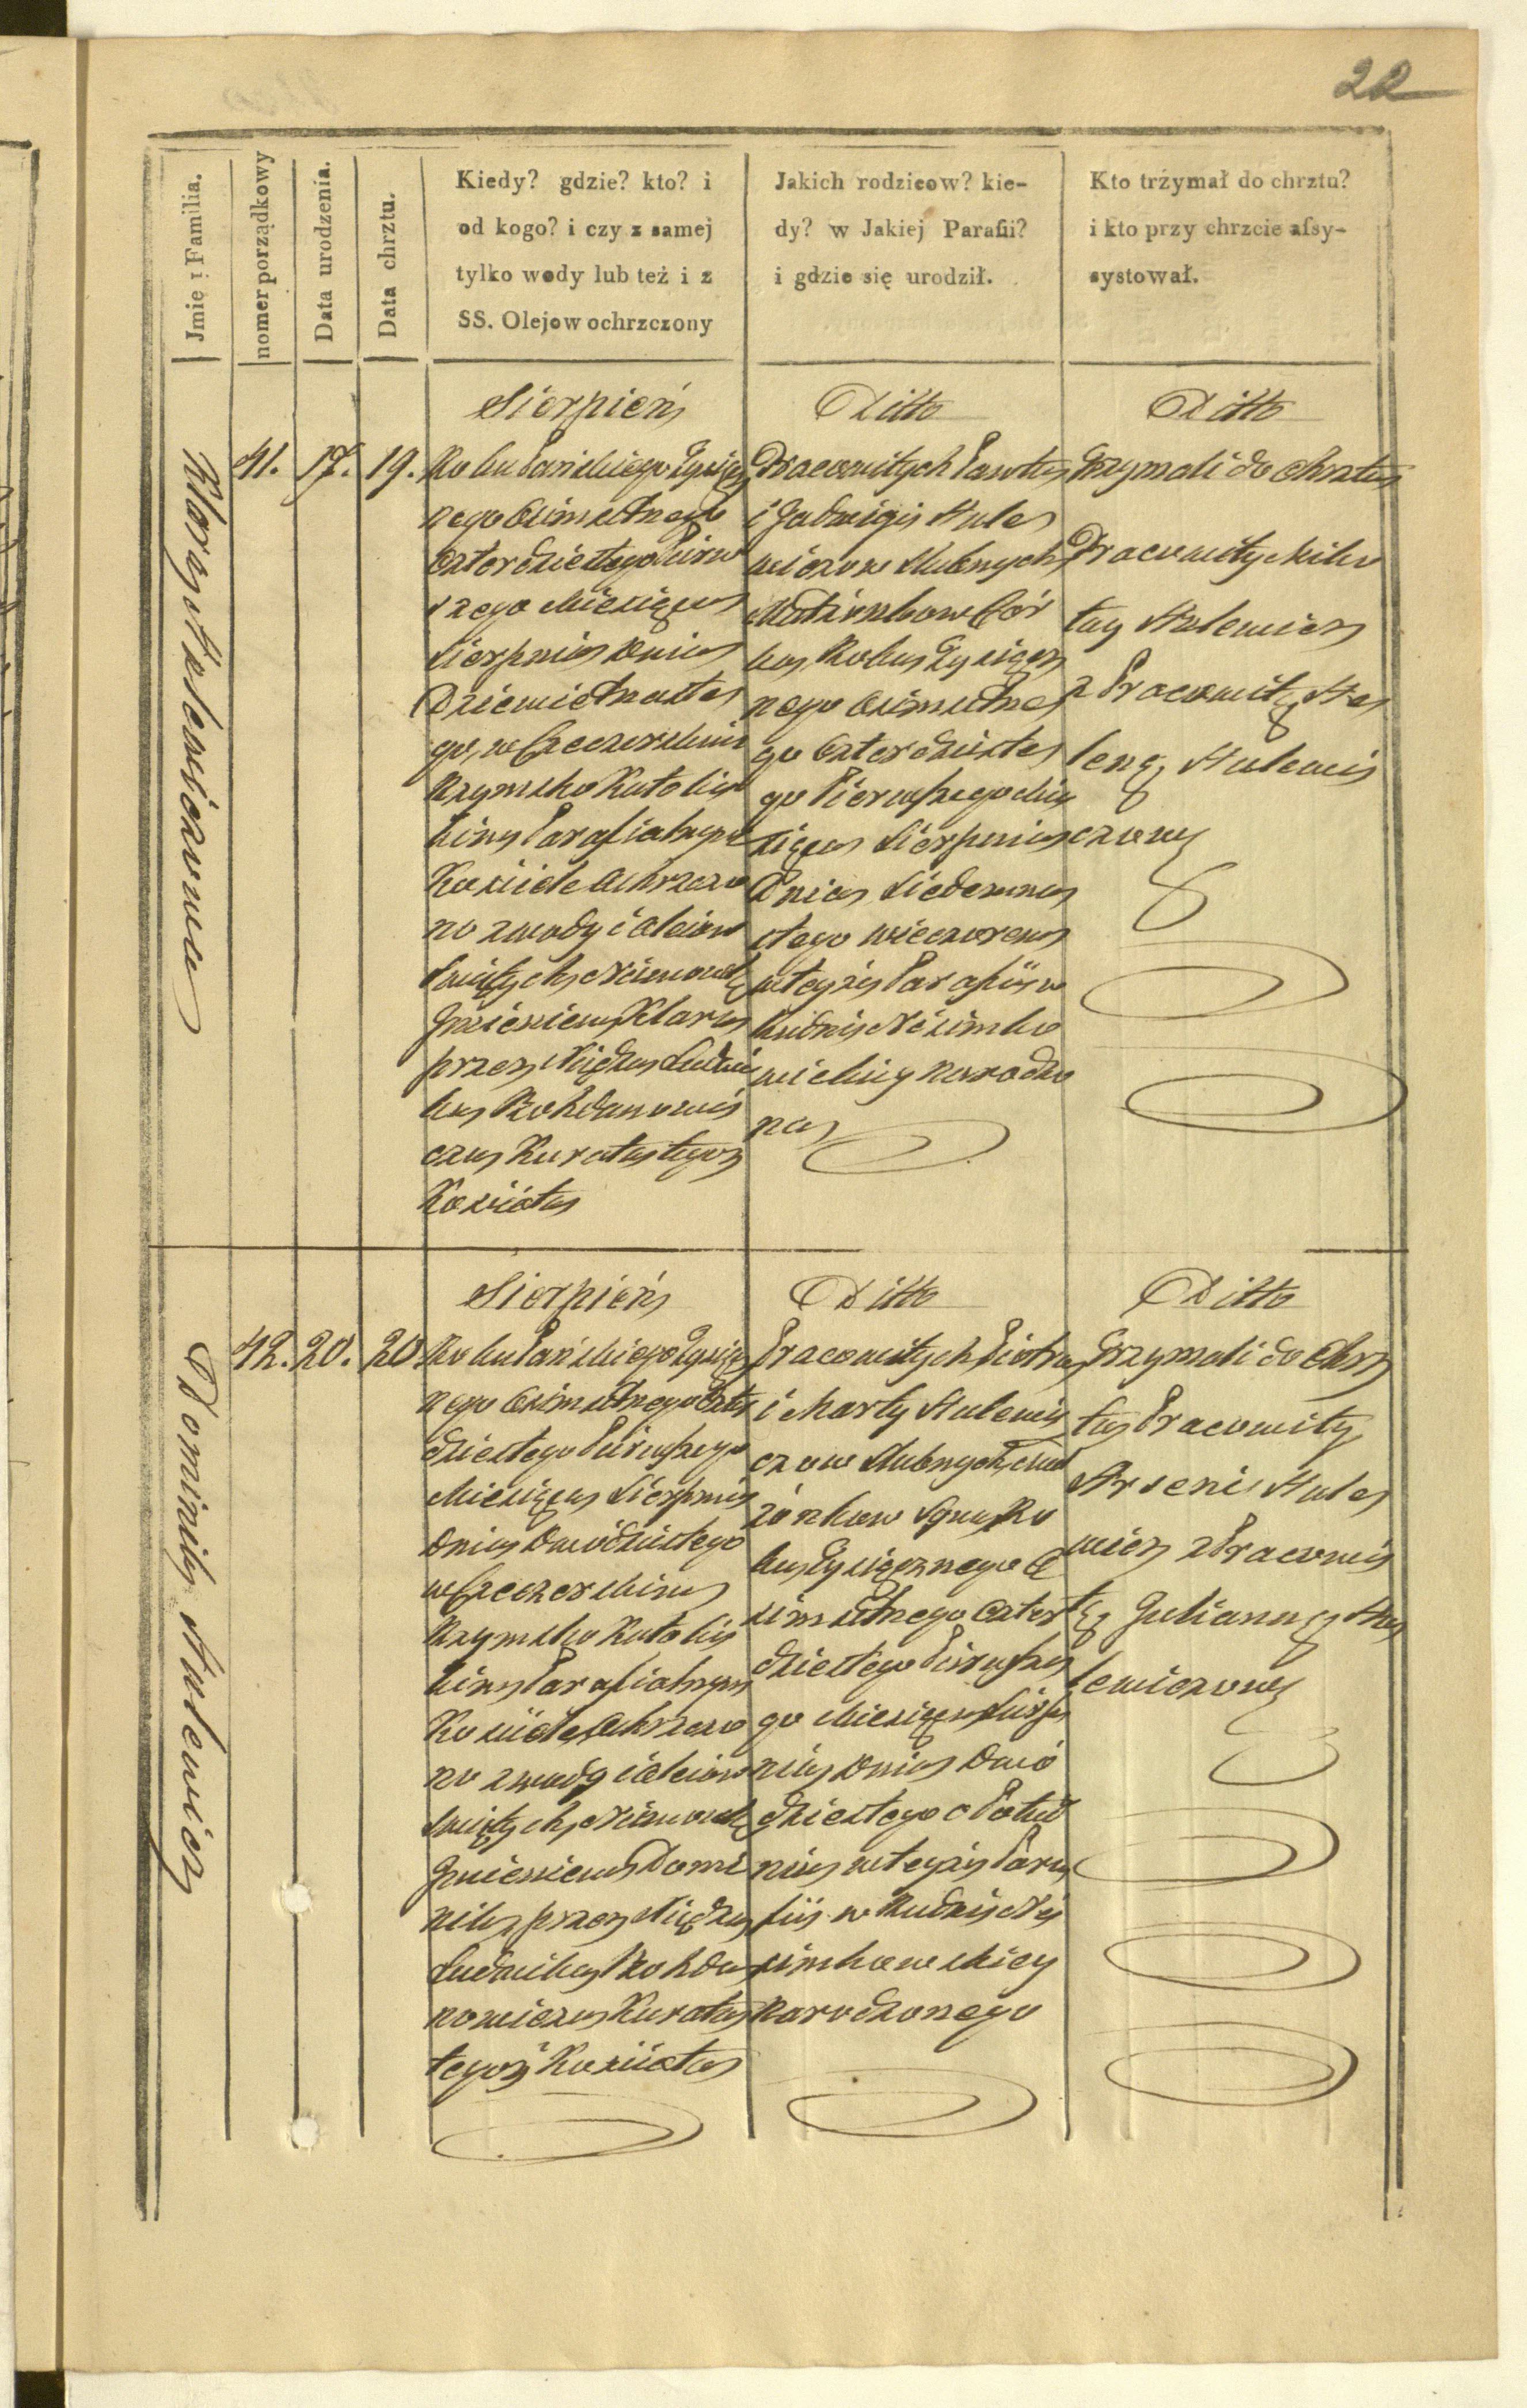 22
Jmię i Familia.
nomer porządkowy
Data urodzenia.
Data chrztu.
Kiedy? gdzie? kto? i
od kogo? i czy z samej
tylko wody lub też i z
SS. Olejow ochrzczony
Jakich rodzicow? kie-
dy? w Jakiej Parafii?
i gdzie się urodził.
Kto trzymał do chrztu?
i kto przy chrzcie afsy-
systował.
Klara Hulewiczowna
41.
17.
19.
Sierpień
Roku Pańskiego Tysiącz
nego Ośmsetnego
Czterdziestego Pierw
szego Miesiąca
Sierpnia Dnia
Dziewietnaste
go, w Czeczerskim
Rzymsko Katolic
kim Parafialnym
Kościele Ochrzczo
no z wody i Oleiow
Swiętych Niemowlę
Jmieniem Klara
przez Xiędza Ludwi
ka Bohdanowi
cza Kurata tegoz
Kościoła
Ditto
Pracowitych Pawła
i Jadwigi Hule
wiczow Slubnych
Małżonkow Cór
ka, Roku Tysiącz
nego Ośmsetne
go Czterdzieste
go Pierwszego Mie
siąca Sierpnia
Dnia Siedemna
stego wieczorem
w teyże Parafii w
Rudni Nisimko
wickiey narodzo
na
Ditto
Trzymali do Chrztu
Pracowity Miko
łay Hulewicz
z Pracowitą He
leną Hulewi
czową
Dominik Hulewicz
42.
20.
20
Sierpień
Roku Pańskiego Tysiącz
nego Ośmsetnego Czter
dziestego Pierwszego
Miesiąca Sierpnia
Dnia Dwódziestego
w Czeczerskim
Rzymsko Katolic
kim Parafialnym
Kościele Ochrzczo
no z wody i Oleiow
Swiętych Niemowlę
Jmieniem Domi
nik przez Xiędza
Ludwika Bohda
nowicza Kurata
tegoż Kościoła
Ditto
Pracowitych Piotra
i Marty Hulewi
czow Slubnych Mał
żonkow Syna, Ro
ku Tysiącznego O
smsetnego Czter
dziestego Pierwsze
go Miesiąca Sierp
nia Dnia Dwó
dziestego o Połud
niu w teyże Para
fii w Rudni Ni
simkowskiey
narodzonego
Ditto
Trzymali do Chrz
tu Pracowity
Arseni Hule
wicz z Pracowi
tą Julianną Hu
lewiczową